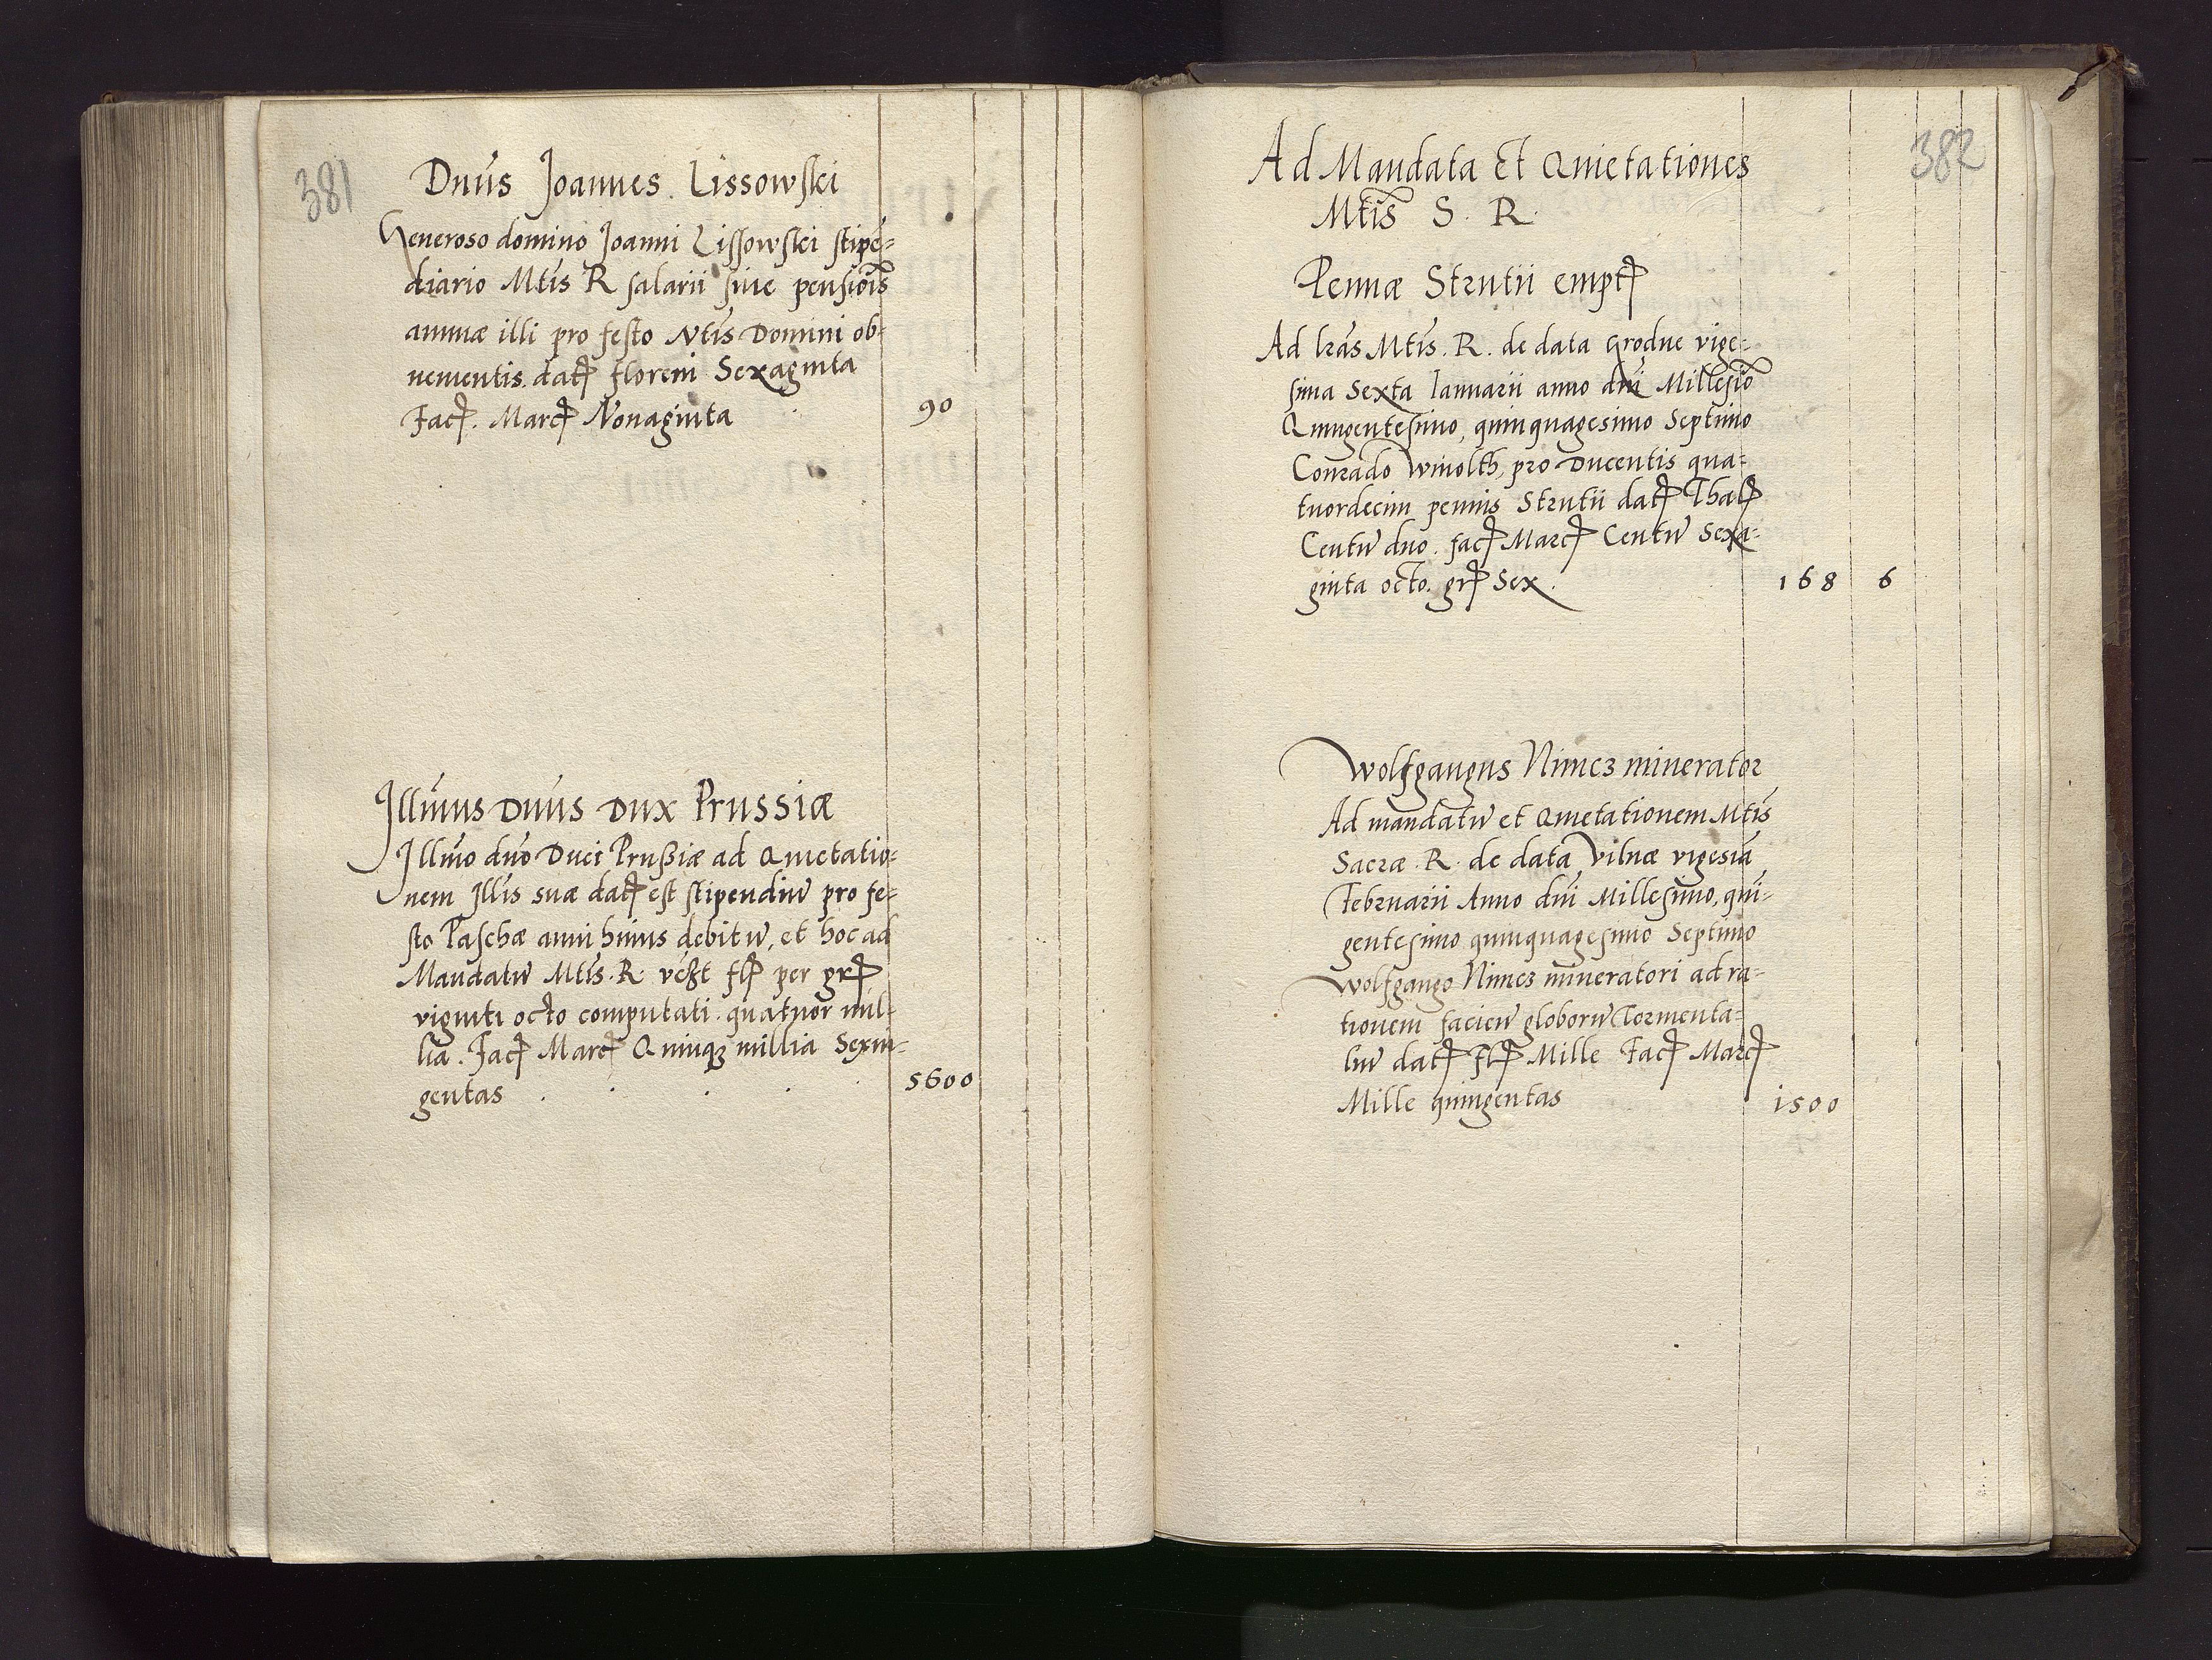 381
Dnūs Joannes Lissowski
Generoso domino Joanni Lissowski stipē=
diario Mtīs R salarii sive pensiōis
annuæ illi pro festo Ntīs Domini ob=
nementis datꝭ floreni Sexaginta
Facꝭ. Marcꝭ Nonaginta 90
Illm̄us Dnūs Dux Prussiæ
Illm̄o dnō Duci Prußiæ ad Quietatio=
nem Illīs suæ datꝭ est stipendiū pro fe=
sto Paschæ anni huius debitū, et hoc ad
Mandatū Mtīs. R. flꝭ per grꝭ
viginti octo computati. quatuor mil=
lia. Facꝭ Marcꝭ Quinqꝫ millia Sexin=
gentas 5600
382
Ad Mandata Et Quietationes
Mtīs S. R.
Pennæ Strutii emptꝭ
Ad lrās Mtīs. R. de data Grodne vige=
sima Sexta Januarii anno dnī Millesiō
Quingentesimo, quinquagesimo Septimo
Conrado Winolth, pro Ducentis qua=
tuordecim pennis Strutii datꝭ Thalꝭ
Centū duo. facꝭ Marcꝭ Centū Sexa=
ginta octo. grꝭ Sex. 168 6
Wolfgangus Nimcz minerator
Ad mandatū et Quietationem Mtīs
Sacræ. R. de data Vilnæ vigesiā
Februarii Anno dnī Millesimo, quī=
gentesimo quinquagesimo Septimo
Wolfgango Nimcz mineratori ad ra=
tionem facien̄ globorū Tormenta=
liū datꝭ Flꝭ Mille Facꝭ Marcꝭ
Mille quingentas 1500